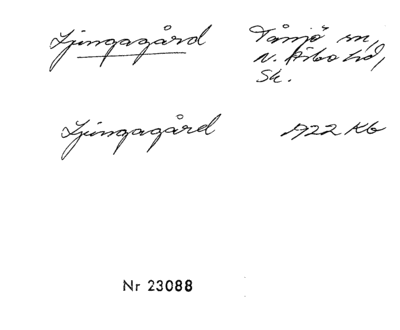 Ljungagård Tåssjö sn,
N. Åsbo hd,
Sk.
Ljungagård 1922 Kb
Nr 23088